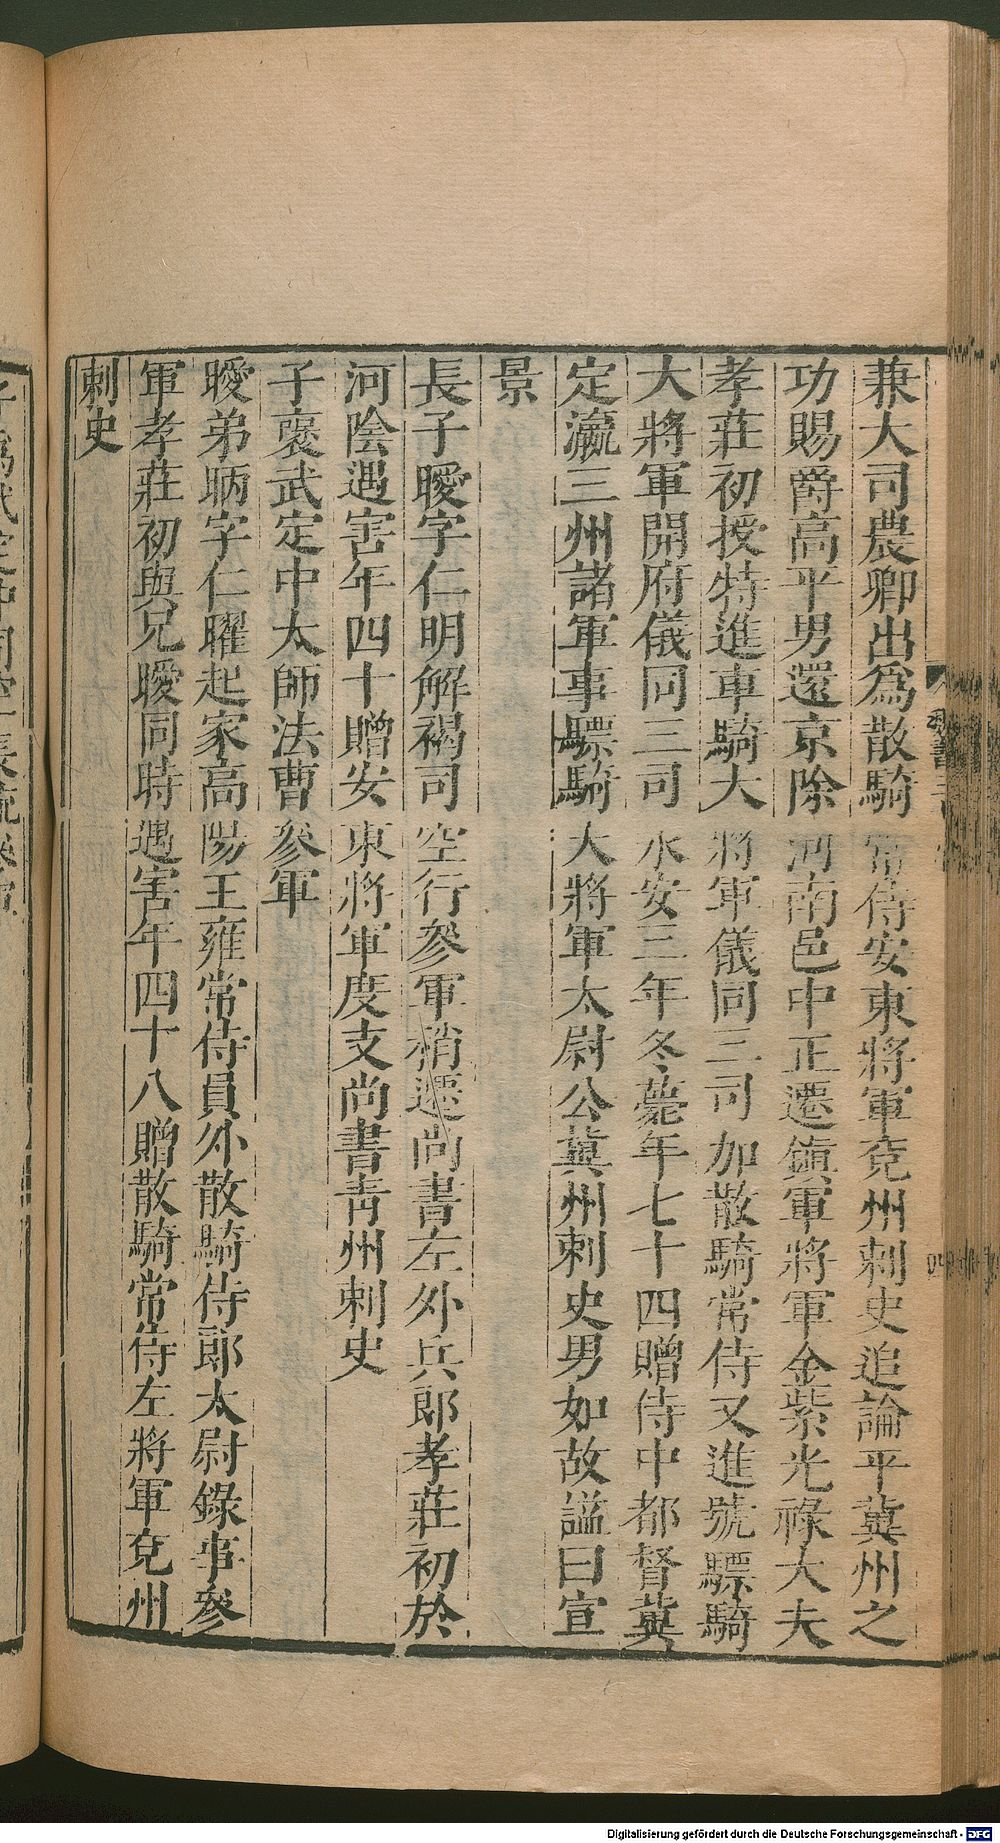 兼大司農卿出爲散騎常侍安東將軍兗州刺史追論平冀州之
功賜爵高平男還京除河南邑中正遷鎮軍將軍金紫光祿大夫
孝莊初授特進車騎大將軍儀同三司加散騎常侍又進號驃騎
大將軍開府儀同三司永安三年冬薨年七十四贈侍中都督冀
定瀛三州諸軍事驃騎大將軍太尉公冀州刺史男如故謚曰宣
景
長子曖字仁明解褐司空行參軍稍遷尚書左外兵郎孝莊初於
河陰遇害年四十贈安東將軍度支尚書青州刺史
子褒武定中太師法曹參軍
曖弟昞字仁曜起家高陽王雍常侍員外散騎侍郎太尉錄事參
軍孝莊初與兄曖同時遇害年四十八贈散騎常侍左將軍兗州
刺史
Digitalisierung gefördert durch die Deutsche Forschungsgemeinschaft - DFG